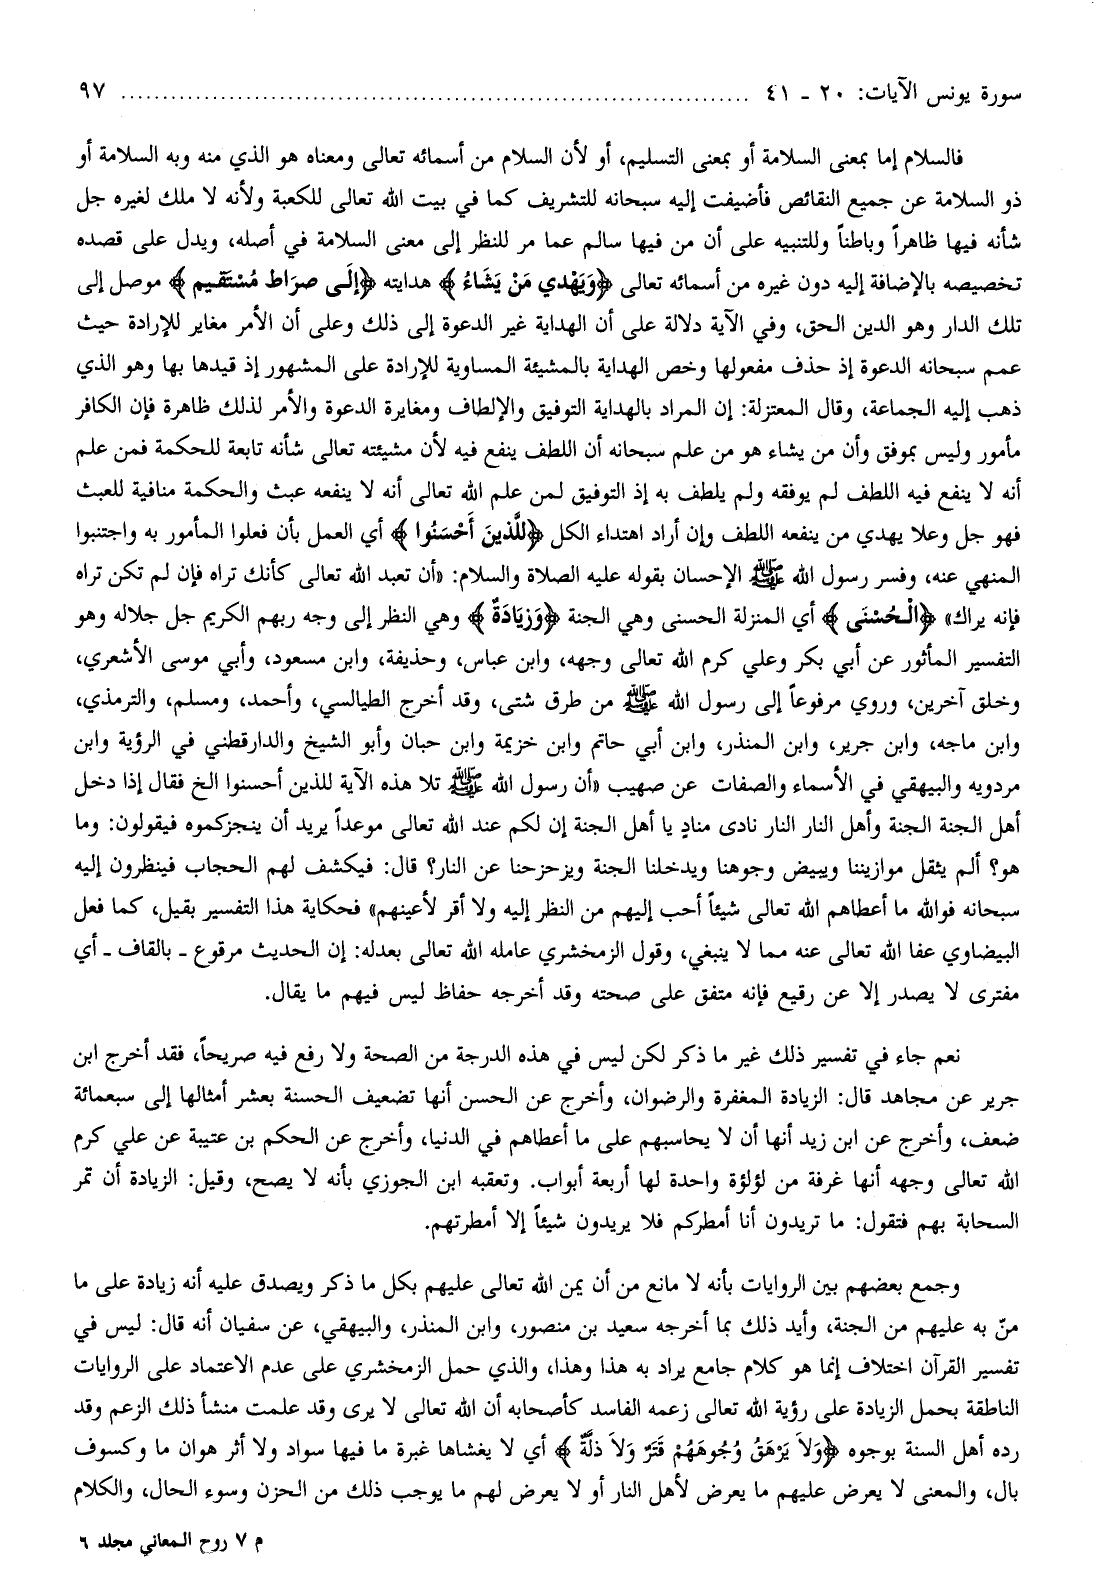 سورة يونس الآيات: ٢٠ ـ ٤١ ........................................................................... ٩٧
فالسلام إما بمعنى السلامة أو بمعنى التسليم، أو لأن السلام من أسمائه تعالى ومعناه هو الذي منه وبه السلامة أو
ذو السلامة عن جميع النقائص فأضيفت إليه سبحانه للتشريف كما في بيت الله تعالى للكعبة ولأنه لا ملك لغيره جل
شأنه فيها ظاهراً وباطناً وللتنبيه على أن من فيها سالم عما مر للنظر إلى معنى السلامة في أصله، ويدل على قصده
تخصيصه بالإضافة إليه دون غيره من أسمائه تعالى ﴿وَيَهْدي مَنْ يَشَاءُ﴾ هدايته ﴿إلَى صرَاط مُسْتَقيم﴾ موصل إلى
تلك الدار وهو الدين الحق، وفي الآية دلالة على أن الهداية غير الدعوة إلى ذلك وعلى أن الأمر مغاير للإرادة حيث
عمم سبحانه الدعوة إذ حذف مفعولها وخص الهداية بالمشيئة المساوية للإرادة على المشهور إذ قيدها بها وهو الذي
ذهب إليه الجماعة، وقال المعتزلة: إن المراد بالهداية التوفيق والإلطاف ومغايرة الدعوة والأمر لذلك ظاهرة فإن الكافر
مأمور وليس بموفق وأن من يشاء هو من علم سبحانه أن اللطف ينفع فيه لأن مشيئته تعالى شأنه تابعة للحكمة فمن علم
أنه لا ينفع فيه اللطف لم يوفقه ولم يلطف به إذ التوفيق لمن علم الله تعالى أنه لا ينفعه عبث والحكمة منافية للعبث
فهو جل وعلا يهدي من ينفعه اللطف وإن أراد اهتداء الكل ﴿للَّذينَ أَحْسَنُوا﴾ أي العمل بأن فعلوا المأمور به واجتنبوا
المنهي عنه، وفسر رسول الله ﷺ الإحسان بقوله عليه الصلاة والسلام: «أن تعبد الله تعالى كأنك تراه فإن لم تكن تراه
فإنه يراك» ﴿الْحُسْنَى﴾ أي المنزلة الحسنى وهي الجنة ﴿وَزيَادَةٌ﴾ وهي النظر إلى وجه ربهم الكريم جل جلاله وهو
التفسير المأثور عن أبي بكر وعلي كرم الله تعالى وجهه، وابن عباس، وحذيفة، وابن مسعود، وأبي موسى الأشعري،
وخلق آخرين، وروي مرفوعاً إلى رسول الله ﷺ من طرق شتى، وقد أخرج الطيالسي، وأحمد، ومسلم، والترمذي،
وابن ماجه، وابن جرير، وابن المنذر، وابن أبي حاتم وابن خزيمة وابن حبان وأبو الشيخ والدارقطني في الرؤية وابن
مردويه والبيهقي في الأسماء والصفات عن صهيب «أن رسول الله ﷺ تلا هذه الآية للذين أحسنوا الخ فقال إذا دخل
أهل الجنة الجنة وأهل النار النار نادى منادٍ يا أهل الجنة إن لكم عند الله تعالى موعداً يريد أن ينجزكموه فيقولون: وما
هو؟ ألم يثقل موازيننا ويبيض وجوهنا ويدخلنا الجنة ويزحزحنا عن النار؟ قال: فيكشف لهم الحجاب فينظرون إليه
سبحانه فوالله ما أعطاهم الله تعالى شيئاً أحب إليهم من النظر إليه ولا أقر لأعينهم» فحكاية هذا التفسير بقيل، كما فعل
البيضاوي عفا الله تعالى عنه مما لا ينبغي، وقول الزمخشري عامله الله تعالى بعدله: إن الحديث مرقوع ـ بالقاف ـ أي
مفترى لا يصدر إلا عن رقيع فإنه متفق على صحته وقد أخرجه حفاظ ليس فيهم ما يقال.
نعم جاء في تفسير ذلك غير ما ذكر لكن ليس في هذه الدرجة من الصحة ولا رفع فيه صريحاً، فقد أخرج ابن
جرير عن مجاهد قال: الزيادة المغفرة والرضوان، وأخرج عن الحسن أنها تضعيف الحسنة بعشر أمثالها إلى سبعمائة
ضعف، وأخرج عن ابن زيد أنها أن لا يحاسبهم على ما أعطاهم في الدنيا، وأخرج عن الحكم بن عتيبة عن علي كرم
الله تعالى وجهه أنها غرفة من لؤلؤة واحدة لها أربعة أبواب. وتعقبه ابن الجوزي بأنه لا يصح، وقيل: الزيادة أن تمر
السحابة بهم فتقول: ما تريدون أنا أمطركم فلا يريدون شيئاً إلا أمطرتهم.
وجمع بعضهم بين الروايات بأنه لا مانع من أن يمن الله تعالى عليهم بكل ما ذكر ويصدق عليه أنه زيادة على ما
منّ به عليهم من الجنة، وأيد ذلك بما أخرجه سعيد بن منصور، وابن المنذر، والبيهقي، عن سفيان أنه قال: ليس في
تفسير القرآن اختلاف إنما هو كلام جامع يراد به هذا وهذا، والذي حمل الزمخشري على عدم الاعتماد على الروايات
الناطقة بحمل الزيادة على رؤية الله تعالى زعمه الفاسد كأصحابه أن الله تعالى لا يرى وقد علمت منشأ ذلك الزعم وقد
رده أهل السنة بوجوه ﴿وَلاَ يَرْهَقُ وُجُوهَهُمْ قَتَرٌ وَلاَ ذلَّةٌ﴾ أي لا يغشاها غبرة ما فيها سواد ولا أثر هوان ما وكسوف
بال، والمعنى لا يعرض عليهم ما يعرض لأهل النار أو لا يعرض لهم ما يوجب ذلك من الحزن وسوء الحال، والكلام
م ٧ روح المعاني مجلد ٦